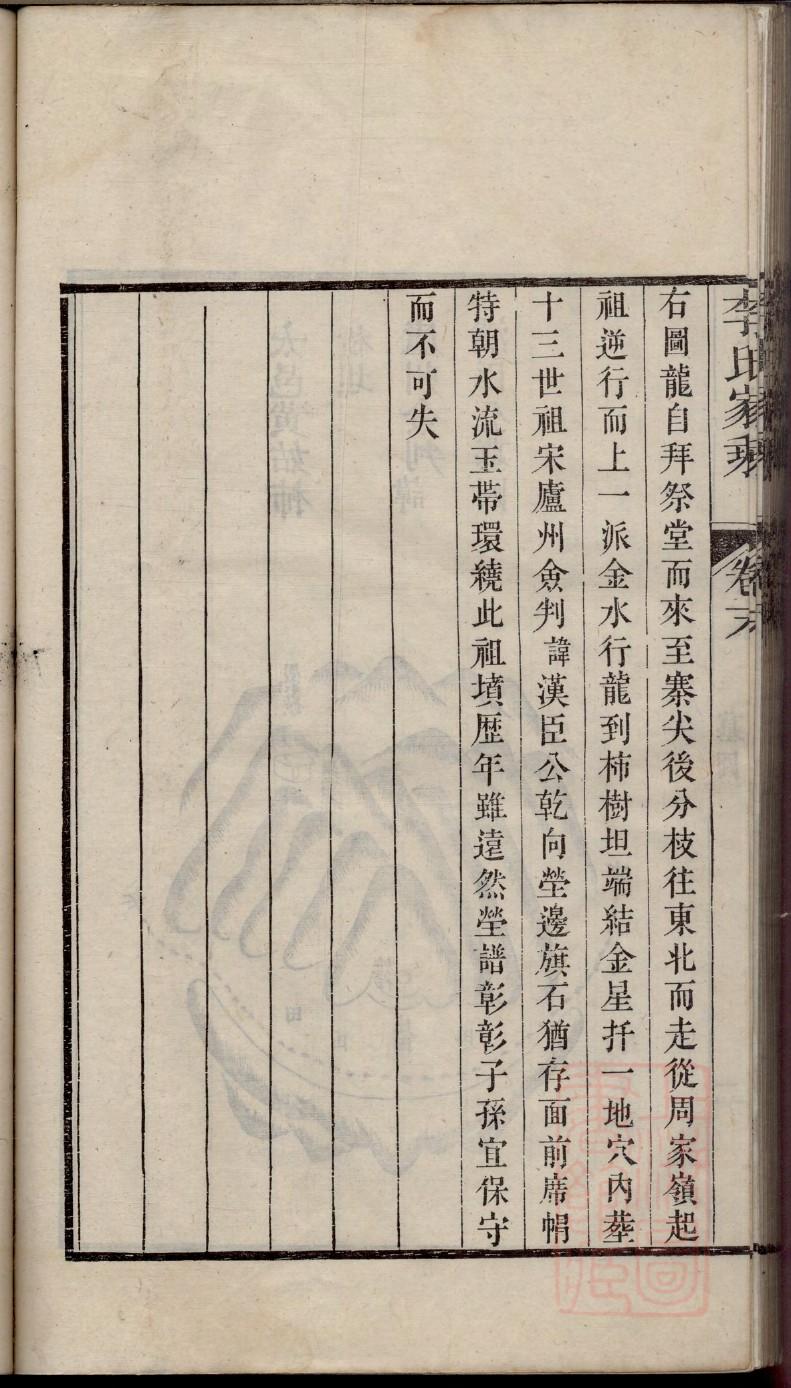 李氏家乘 卷六
右圖龍自拜祭堂而來至寨尖後分枝往東北而走從周家嶺起
祖逆行而上一派金水行龍到柿樹坦端結金星扦一地穴內塟
十三世祖宋廬州僉判諱漢臣公乾向塋邊旗石猶存面前席帽
特朝水流玉帶環繞此祖墳歷年雖遠然塋譜彰彰子孫宜保守
而不可失